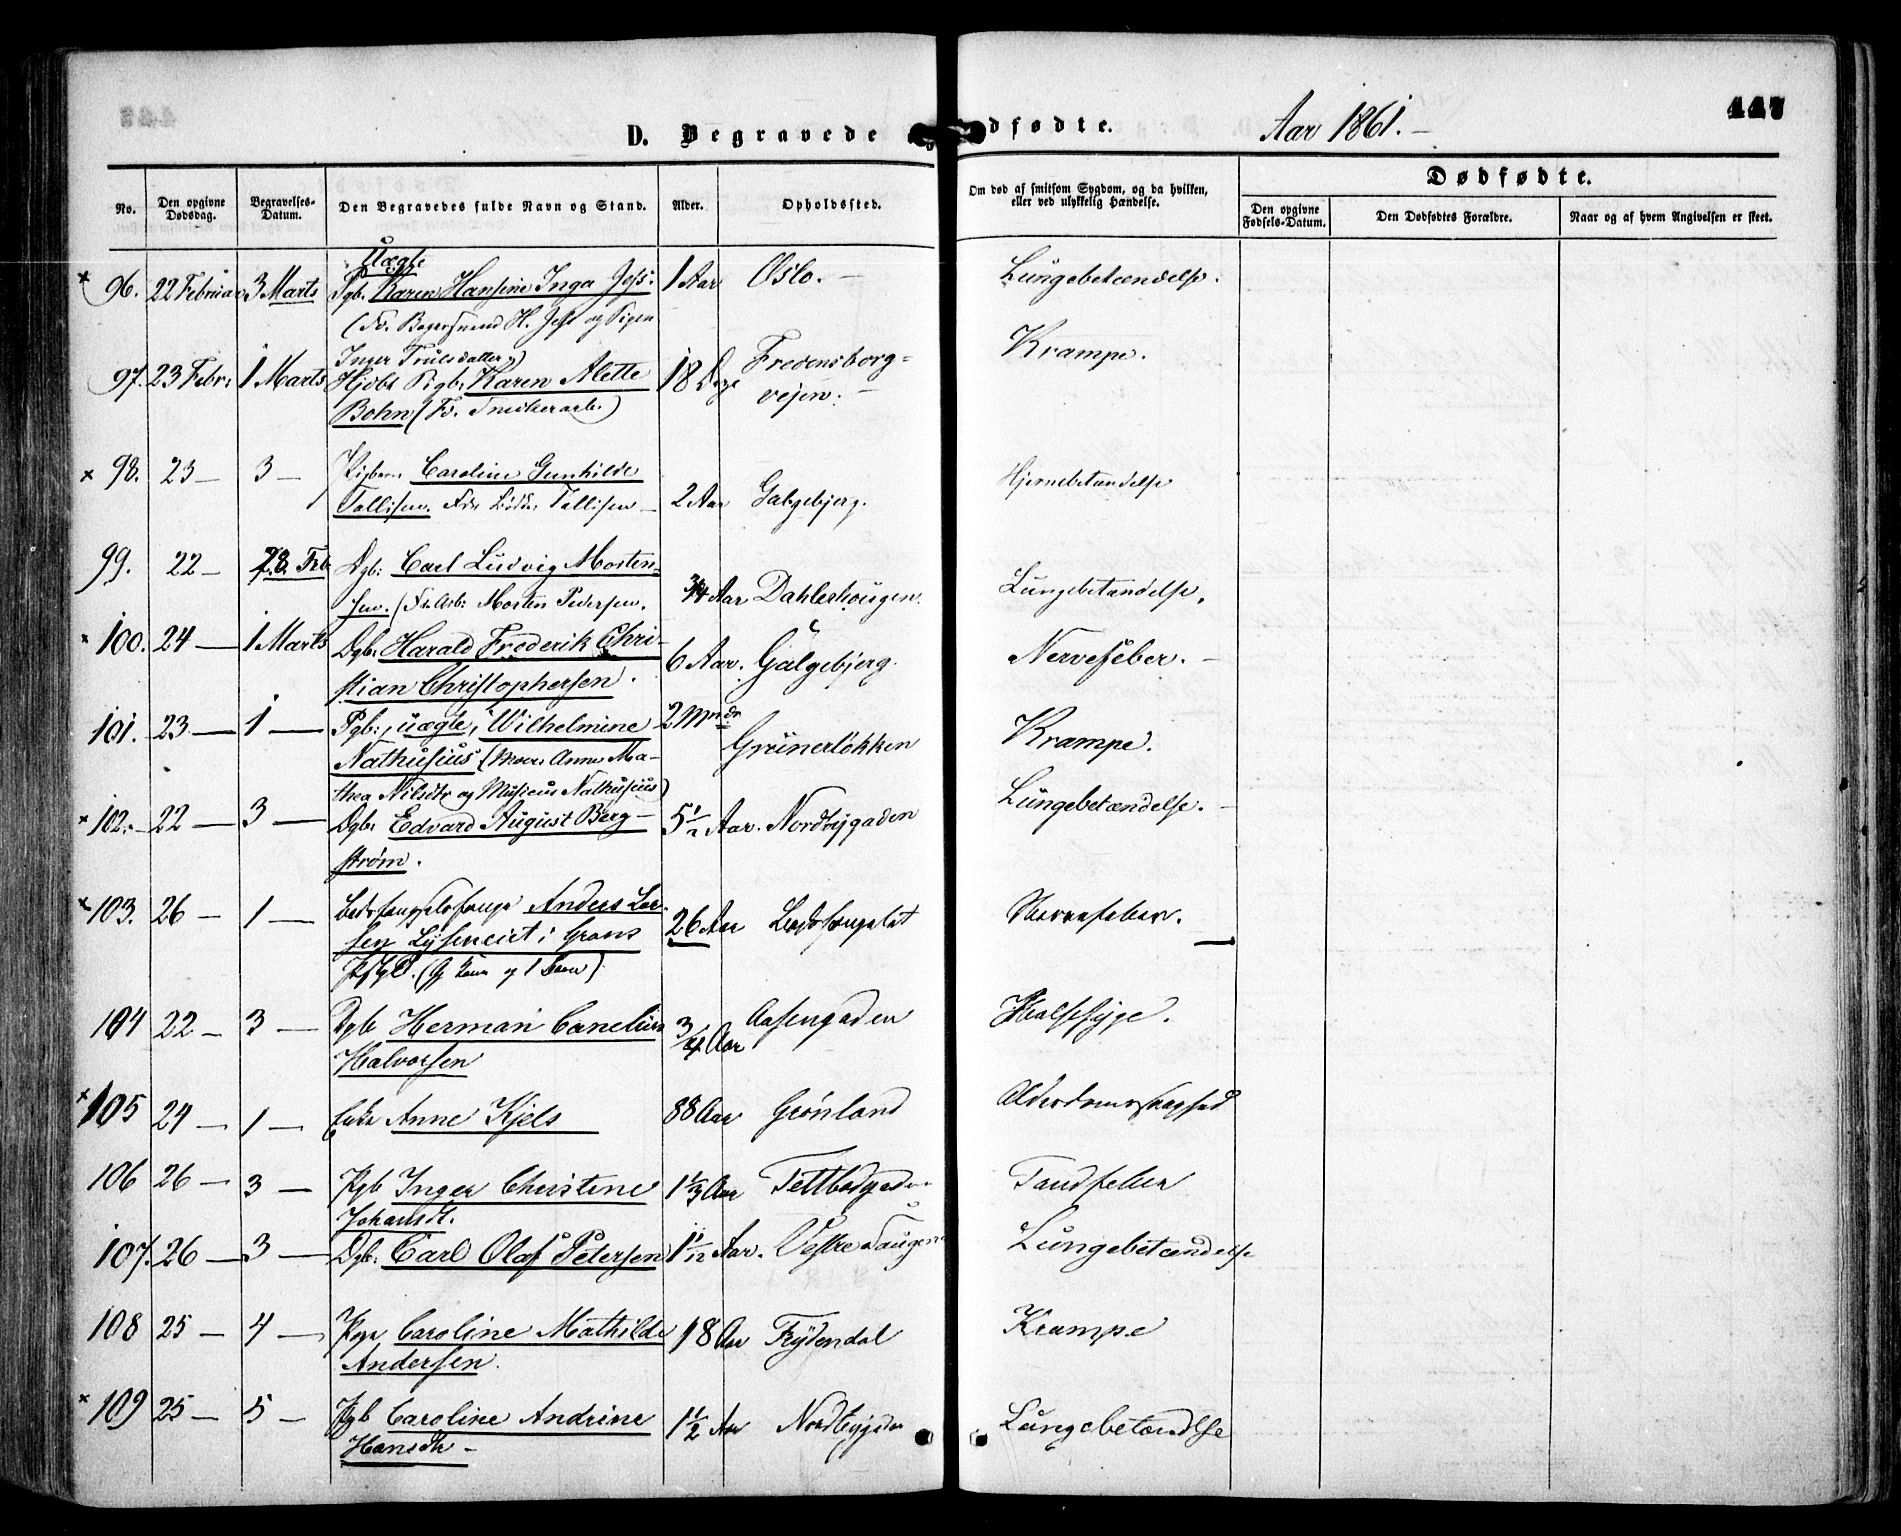 447
D. Begravede og Dødfødte. Aar 1861.
No. | Den opgivne Dødsdag. | Begravelses-Datum. | Den Begravedes fulde Navn og Stand. | Alder. | Opholdssted. | Om død af smitsom Sygdom, og da hvilken, eller ved ulykkelig Hændelse. | Dødfødte.
Den opgivne Fødsels-Datum. | Den Dødfødtes Forældre. | Naar og af hvem Angivelsen er skeet.
Uægte
× 96. 22 Februar 3 Marts Pgb. Karen Hansine Inga Jess. 1 Aar Oslo. — Lungebetændelse.
(Fr. Bagersvend H. Jess og Pigen
Inger Trulsdatter)
97. 23 Febr. 1 Marts Hjdbt Pigb. Karen Alette 18 Dage Fredensborg= Krampe.
Bohn (Fr. Snedkerarb.) vejen. —
× 98. 23 — 3 — Pigebarn Caroline Gunhilde
Tollisen. Fdr Tollisen — 2 Aar Galgebjerg. Hjernebetændelse
99. 22 — 28. Feb. Dgb: Carl Ludvig Morten=
sen. (Fr. Arb: Morten Pedersen. 3/4 Aar Dahlerhougen. Lungebetændelse.
× 100. 24 — 1 Marts Dgb. Harald Frederik Chri-
stian Christophersen. 6 Aar. Galgebjerg. Nervefeber. —
101. 23 — 1 — Pgb:, uægte, Wilhelmine 2 Mndr
Nathusius (Moer Anne Ma- Grünerløkken Krampe.
thea Nilsdtr og Musicus Nathusius)
× 102. 22 — 3 — Dgb. Edvard August Berg- 5 1/2 Aar. Nordbygaden Lungebetændelse. —
strøm.
× 103. 26 — 1 — Anders Lar-
sen Lyseneiet i Grans 26 Aar Nervefeber.
Pfgld. (Gift Kone og 1 Barn).
104 22 — 3 — Dgb Herman Cornelius 3/4 Aar Aasengaden Halssyge.
Halvorsen
× 105 24 — 1 — Enke Anne Kjels 88 Aar Grønland Alderdomssvaghed
106 26 — 3 — Pgb Inger Christine 1 1/3 Aar Tandfeber
Johansdt.
107. 26 — 3 — Dgb: Carl Olaf Petersen 1 1/12 Aar. Vestre Lungebetændelse
108 25 — 4 — Pige Caroline Mathilde 18 Aar Frydendal Krampe
Andersen.
× 109 25 — 5 — Pgb Caroline Andrine 1 1/2 Aar Nordbygaden Lungebetændelse
Hansdtr —